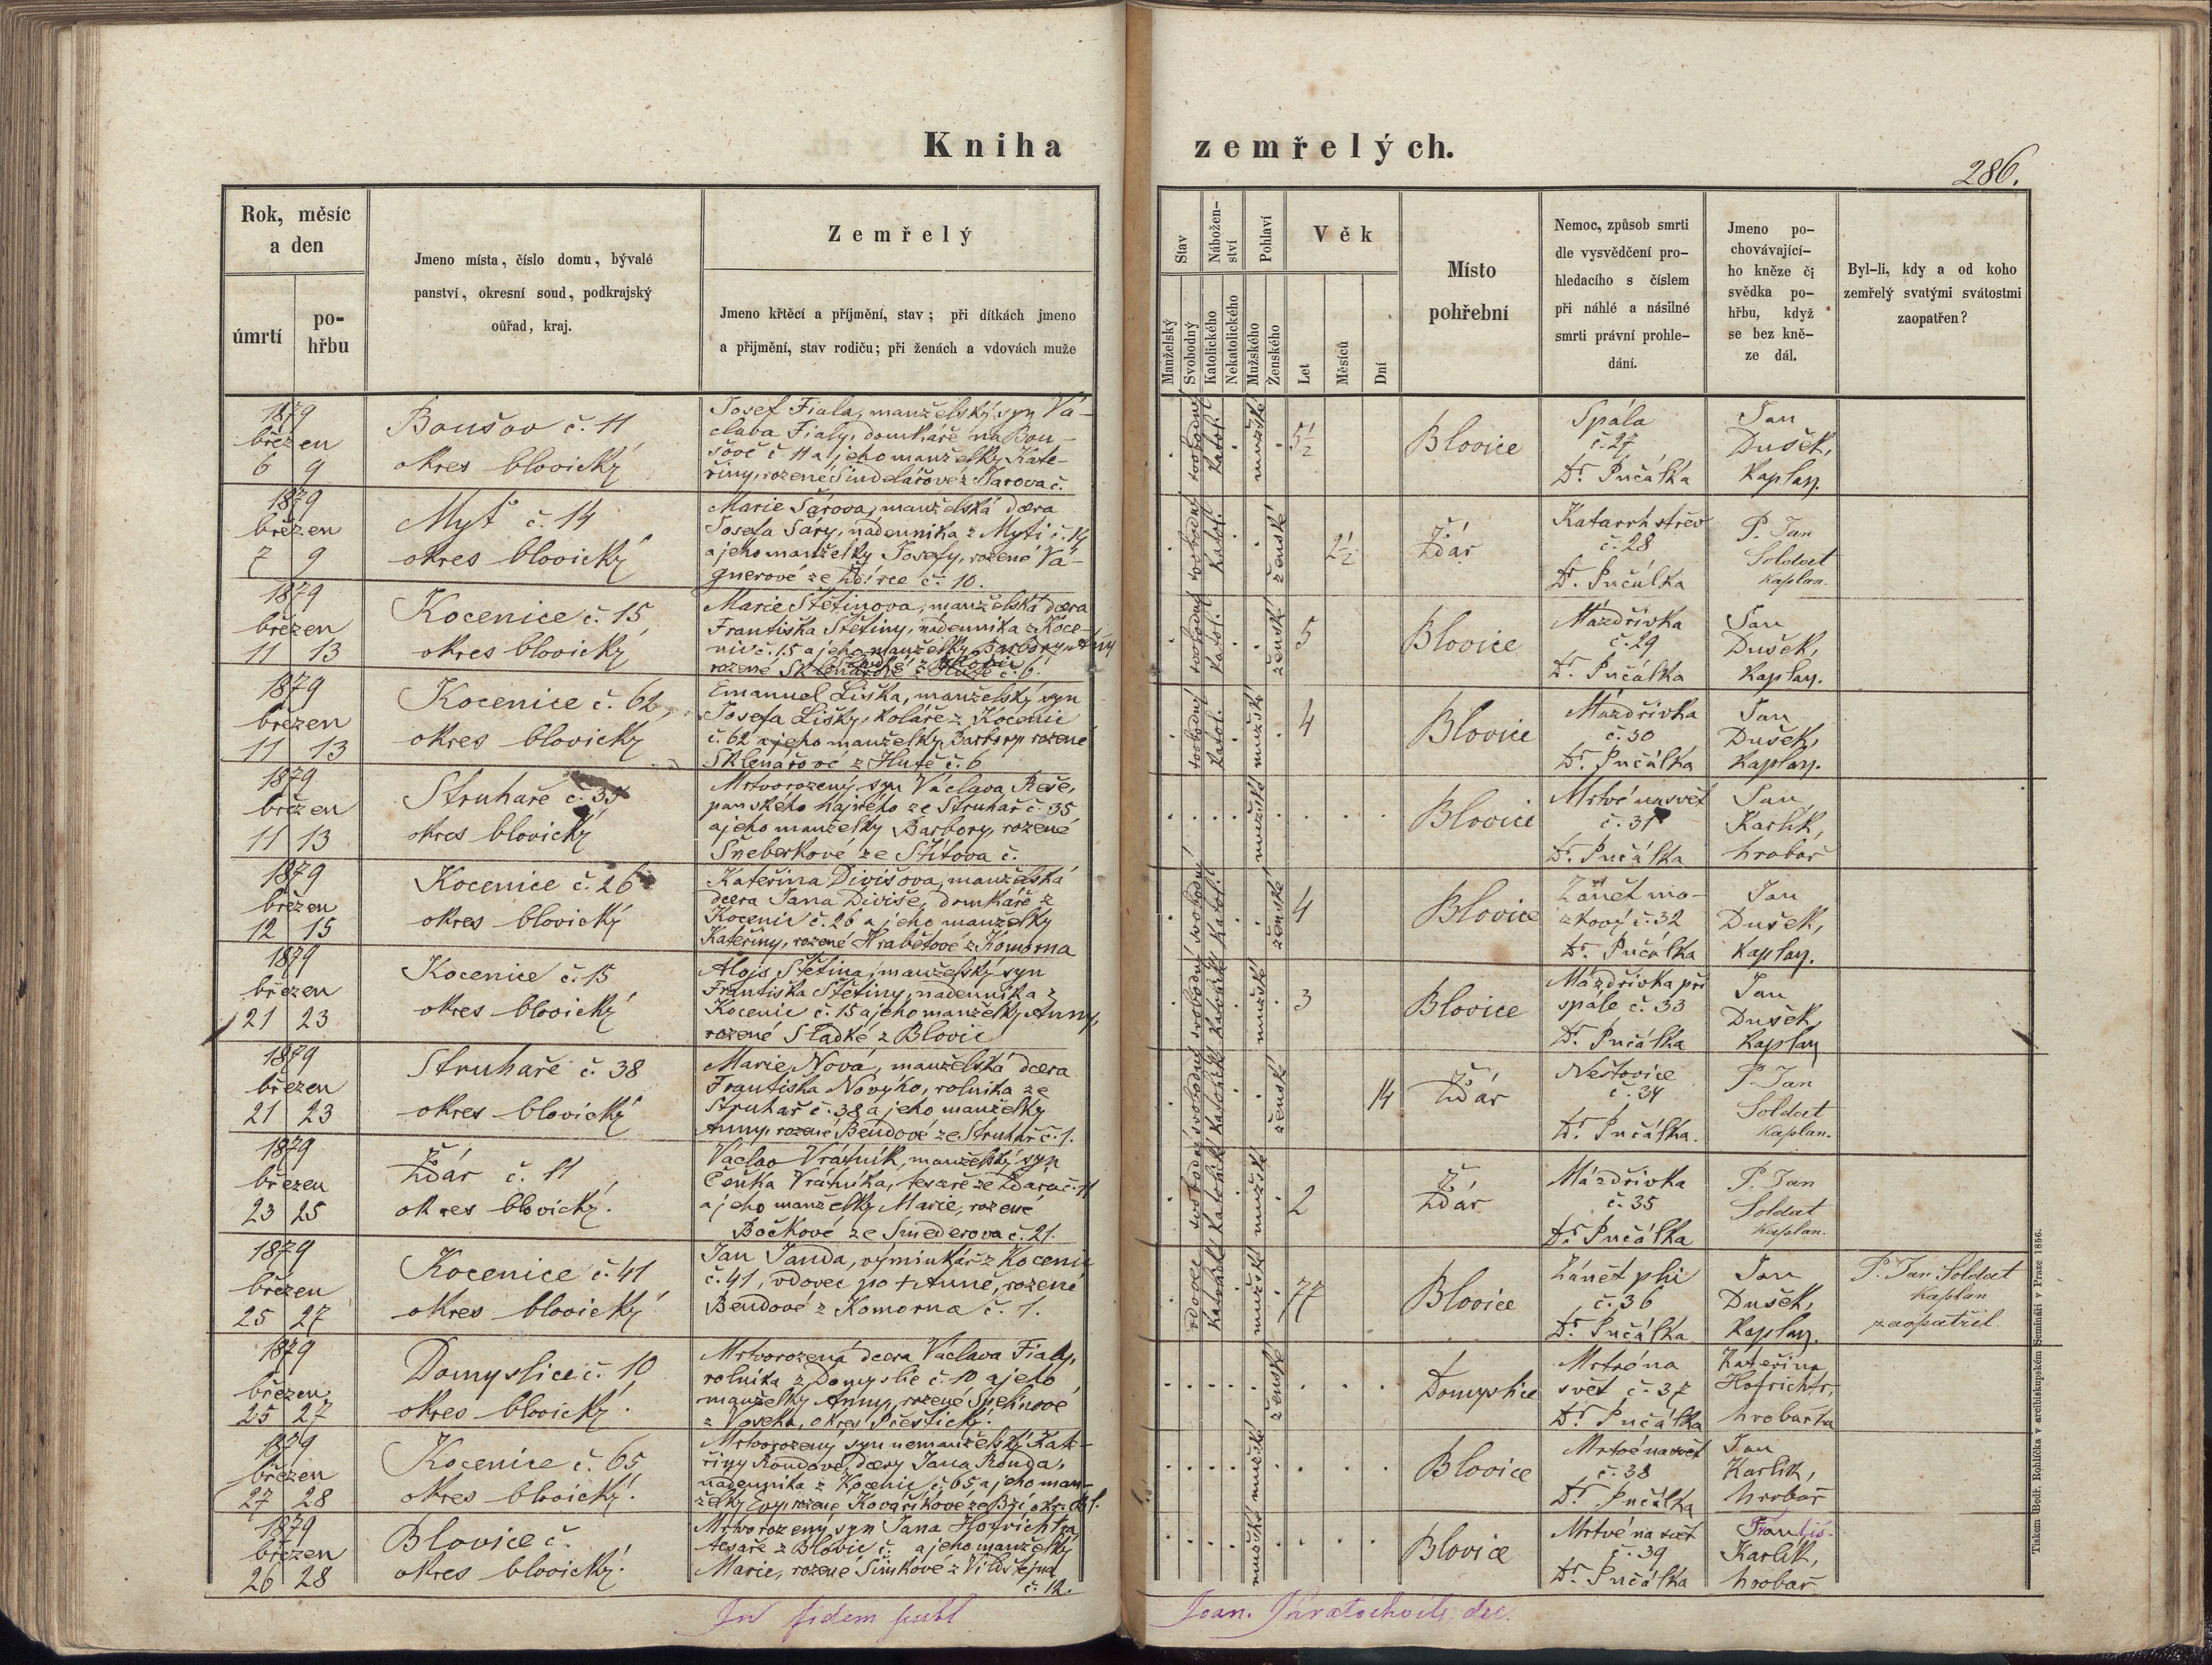 Kniha
zemřelých.
286.
Rok, měsíc
a den
úmrtí
po-
hřbu
Jmeno místa, číslo domu, bývalé
panství, okresní soud, podkrajský
oúřad, kraj.
Zemřelý
Jmeno křtěcí a příjmění, stav; při dítkách jmeno
a přijmění, stav rodiču; při ženách a vdovách muže
Stav
Manželský
Svobodný
Nábožen-
ství
Katolického
Nekatolického
Pohlaví
Mužského
Ženského
Věk
Let
Měsíců
Dní
Místo
pohřební
Nemoc, způsob smrti
dle vysvědčení pro-
hledacího s číslem
při náhlé a násilné
smrti právní prohle-
dání.
Jmeno po-
chovávající-
ho kněze či
svědka po-
hřbu, když
se bez kně-
ze dál.
Byl-li, kdy a od koho
zemřelý svatými svátostmi
zaopatřen?
1879
březen
6 9
Boušov č. 11
okres blovický
Josef Fiala, manželský syn Vá-
clava Fialy, domkáře na Bou-
šově č 11 a jeho manželky Kate-
řiny, rozené Šindelářové z Ždárova č.
svobodný
katol.
mužské
5½
Blovice
Spála
č. 27
Dr. Pučálka
Jan
Dušek,
kaplan.
1879
březen
7 9
Mýť č. 14
okres blovický
Marie Šárova, manželská dcera
Josefa Šáry, nádenníka z Mýti č. 14
a jeho manželky Josefy, rozené Vá-
gnerové ze Ždírce č. 10.
svobodný
katol.
ženské
2½
Ždár
Katarrh střev
č. 28
Dr. Pučálka
P. Jan
Soldat
kaplan.
1879
březen
11 13
Kocenice č. 15
okres blovický
Marie Štětinova, manželská dcera
Františka Štětiny, nádenníka z Koce-
nic č. 15 a jeho manželky Barbory Anny
rozené Sklenářové z Hutě č. 6.
Sladké z Blovic
svobodný
katol.
ženské
5
Blovice
Mázdřivka
č. 29
Dr. Pučálka
Jan
Dušek,
kaplan.
1879
březen
11 13
Kocenice č. 62,
okres blovický
Emanuel Liška, manželský syn
Josefa Lišky, koláře z Kocenic
č. 62 a jeho manželky Barbory rozené
Sklenářové z Hutě č. 6
svobodný
katol.
mužské
4
Blovice
Mázdřivka
č. 30
Dr. Pučálka
Jan
Dušek,
kaplan.
1879
březen
11 13
Struhaře č. 35
okres blovický
Mrtvorozený syn Václava Reše,
panského hajného ze Struhař č. 35
a jeho manželky Barbory, rozené
Šneberkové ze Štítova č.
mužské
Blovice
Mrtvé na svět
č. 31
Dr. Pučálka
Jan
Karlík,
hrobař
1879
březen
12 15
Kocenice č. 26
okres blovický
Kateřina Divišova, manželská
dcera Jana Diviše, domkáře z
Kocenic č. 26 a jeho manželky
Kateřiny, rozené Hrabětové z Komorna
svobodný
katol.
ženské
4
Blovice
Zánět mo-
zkový č. 32
Dr. Pučálka
Jan
Dušek,
kaplan.
1879
březen
21 23
Kocenice č. 15
okres blovický
Alojs Štětina, manželský syn
Františka Štětiny, nádenníka z
Kocenic č. 15 a jeho manželky Anny,
rozené Sladké z Blovic
svobodný
katolické
mužské
3
Blovice
Mázdřivka při
spále č. 33
Dr. Pučálka
Jan
Dušek,
kaplan
1879
březen
21 23
Struhaře č. 38
okres blovický
Marie Nová, manželská dcera
Františka Nového, rolníka ze
Struhař č. 38 a jeho manželky
Anny, rozené Bendové ze Struhař č. 1.
svobodný
katolické
ženské
14
Ždár
Neštovice
č. 34
Dr. Pučálka.
P. Jan
Soldat
kaplan.
1879
březen
23 25
Ždár č. 11
okres blovický.
Václav Vrátník, manželský syn
Čeňka Vrátníka, tesaře ze Ždára č. 11
a jeho manželky Marie, rozené
Bočkové ze Smederova č. 21.
svobodný
katolické
mužské
2
Ždár
Mázdřivka
č. 35
Dr. Pučálka
P. Jan
Soldat
kaplan.
1879
březen
25 27
Kocenice č. 41
okres blovický
Jan Janda, výminkář z Kocenic
č. 41, vdovec po + Anně, rozené
Bendové z Komorna č. 1.
vdovec
katolické
mužské
77
Blovice
Zánět plic
č. 36
Dr. Pučálka
Jan
Dušek,
kaplan.
P. Jan Soldat
kaplan
zaopatřil.
1879
březen
25 27
Domyslice č. 10
okres blovický.
Mrtvorozená dcera Václava Fialy,
rolníka z Domyslic č. 10 a jeho
manželky Anny, rozené Špelinové
z Voseka, okres Přeštický.
ženské
Domyslice
Mrtvé na
svět č. 37
Dr. Pučálka
Kateřina
Hofrichtr,
hrobařka
1879
březen
27 28
Kocenice č. 65
okres blovický.
Mrtvorozený syn nemanželský Kate-
řiny Koudové, dcery Jana Koudy,
nádenníka z Kocenic č. 65, a jeho man-
želky Evy, rozené Kovaříkové ze Bzí, okr. Bl.
mužské
Blovice
Mrtvé na svět
č. 38
Dr. Pučálka
Jan
Karlík,
hrobař
1879
březen
26 28
Blovice č.
okres blovický.
Mrtvorozený syn Jana Hofrichtra,
tesaře z Blovic č. a jeho manželky
Marie, rozené Šimkové z Vildštejna
č. 12.
mužské
Blovice
Mrtvé na svět
č. 39
Dr. Pučálka
Františ.
Karlík,
hrobař
In fidem publ
Joan. Kratochvíl, dec.
Tiskem Bedř. Rohlíčka v arcibiskupském Semináři v Praze 1856.